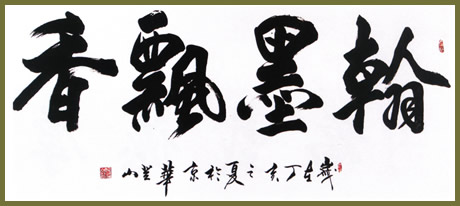 翰墨飄香
歲在丁亥之夏於京華